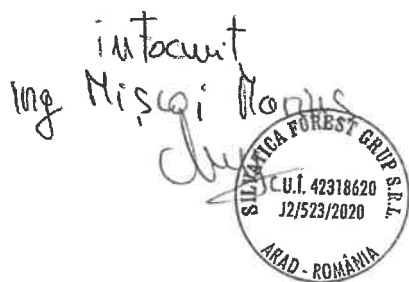 intocmit
ing Mișcoi Marius
SILVATICA FOREST GRUP S.R.L.
C.U.I. 42318620
J2/523/2020
ARAD - ROMÂNIA